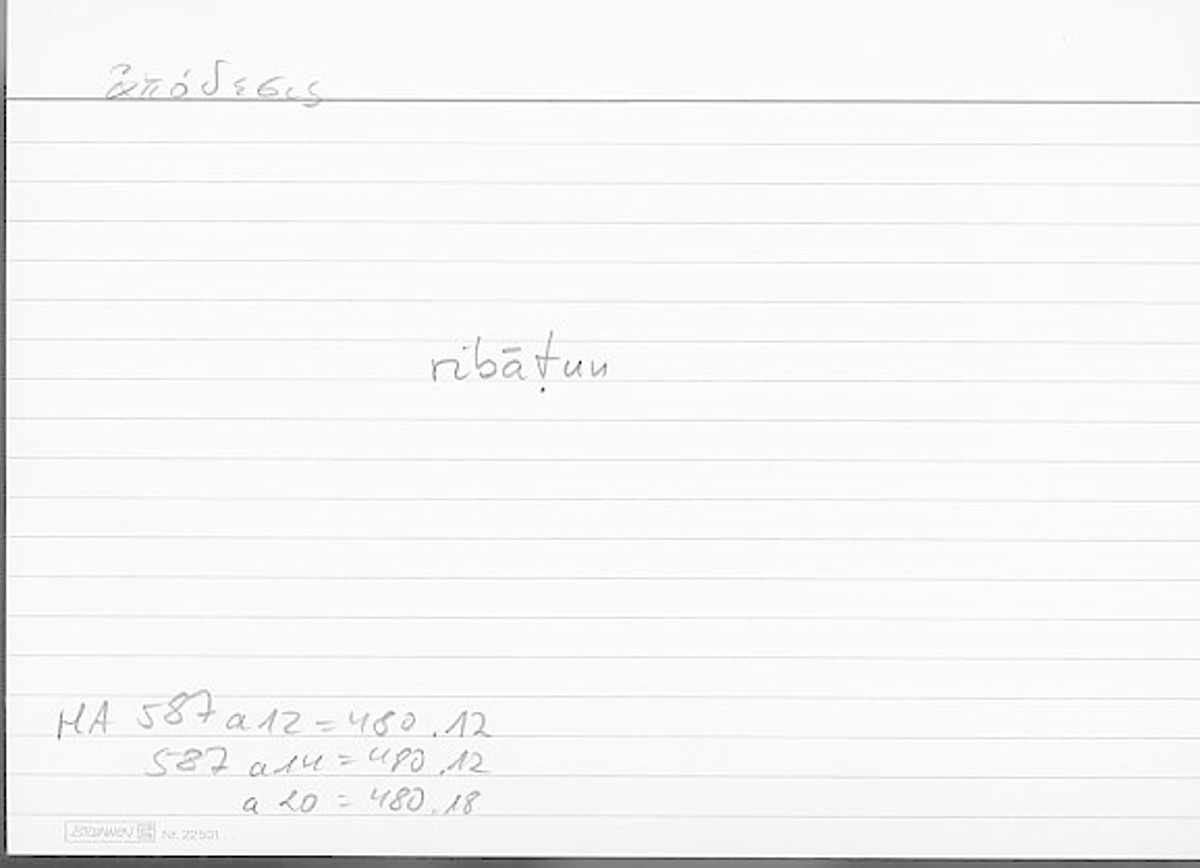 ἀπόδεσις
ribāṭun
HA 587 a 12 = 480.12
587 a 14 = 480.12
a 20 = 480.18
BRUNNEN Nr. 22501